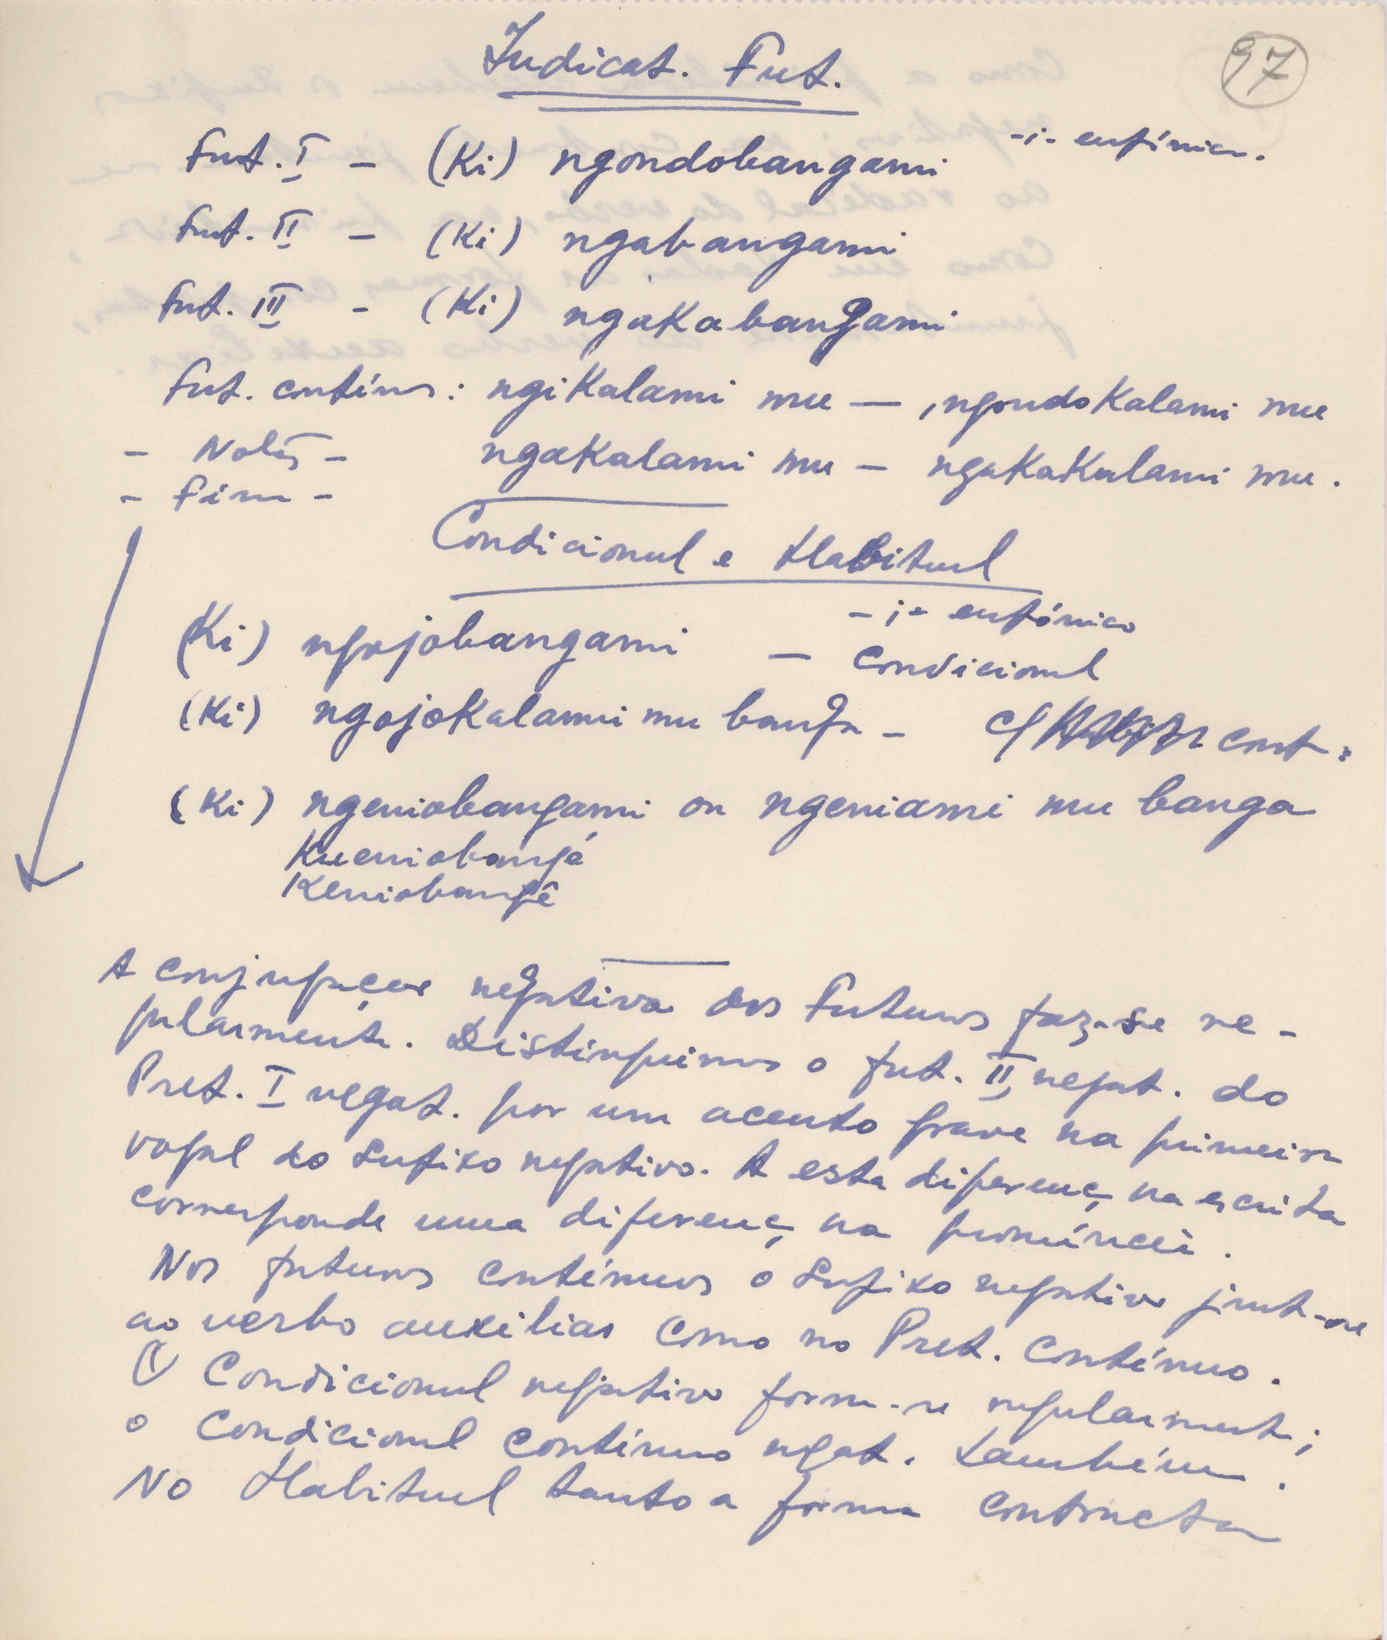 97
Indicat. Fut.
-i- eufónico.
Fut. I – (Ki) ngondobangami
Fut. II – (Ki) ngabangami
Fut. III - (Ki) ngakabangami
Fut. contínuo: ngikalami mu — , ngondokalami mu
- Notas - ngakalami mu – ngakakalami mu.
- Fim -
Condicional e Habitual
- i - eufónico
(Ki) ngojobangami — Condicional
(Ki) ngojokalami mu banga - cont.
(Ki) ngeniobangami ou ngeniami mu banga
Kueniobangá
Keniobangê
A conjugação negativa dos Futuros faz-se re-
gularmente. Distinguimos o fut. II negat. do
Pret. I negat. por um acento grave na primeira
vogal do Sufixo negativo. A esta diferença na escrita
corresponde uma diferença na pronúncia.
Nos futuros contínuos o Sufixo negativo junta-se
ao verbo auxiliar como no Pret. contínuo.
O Condicional negativo forma-se regularmente;
o Condicional contínuo negat. também.
No Habitual tanto a forma contracta